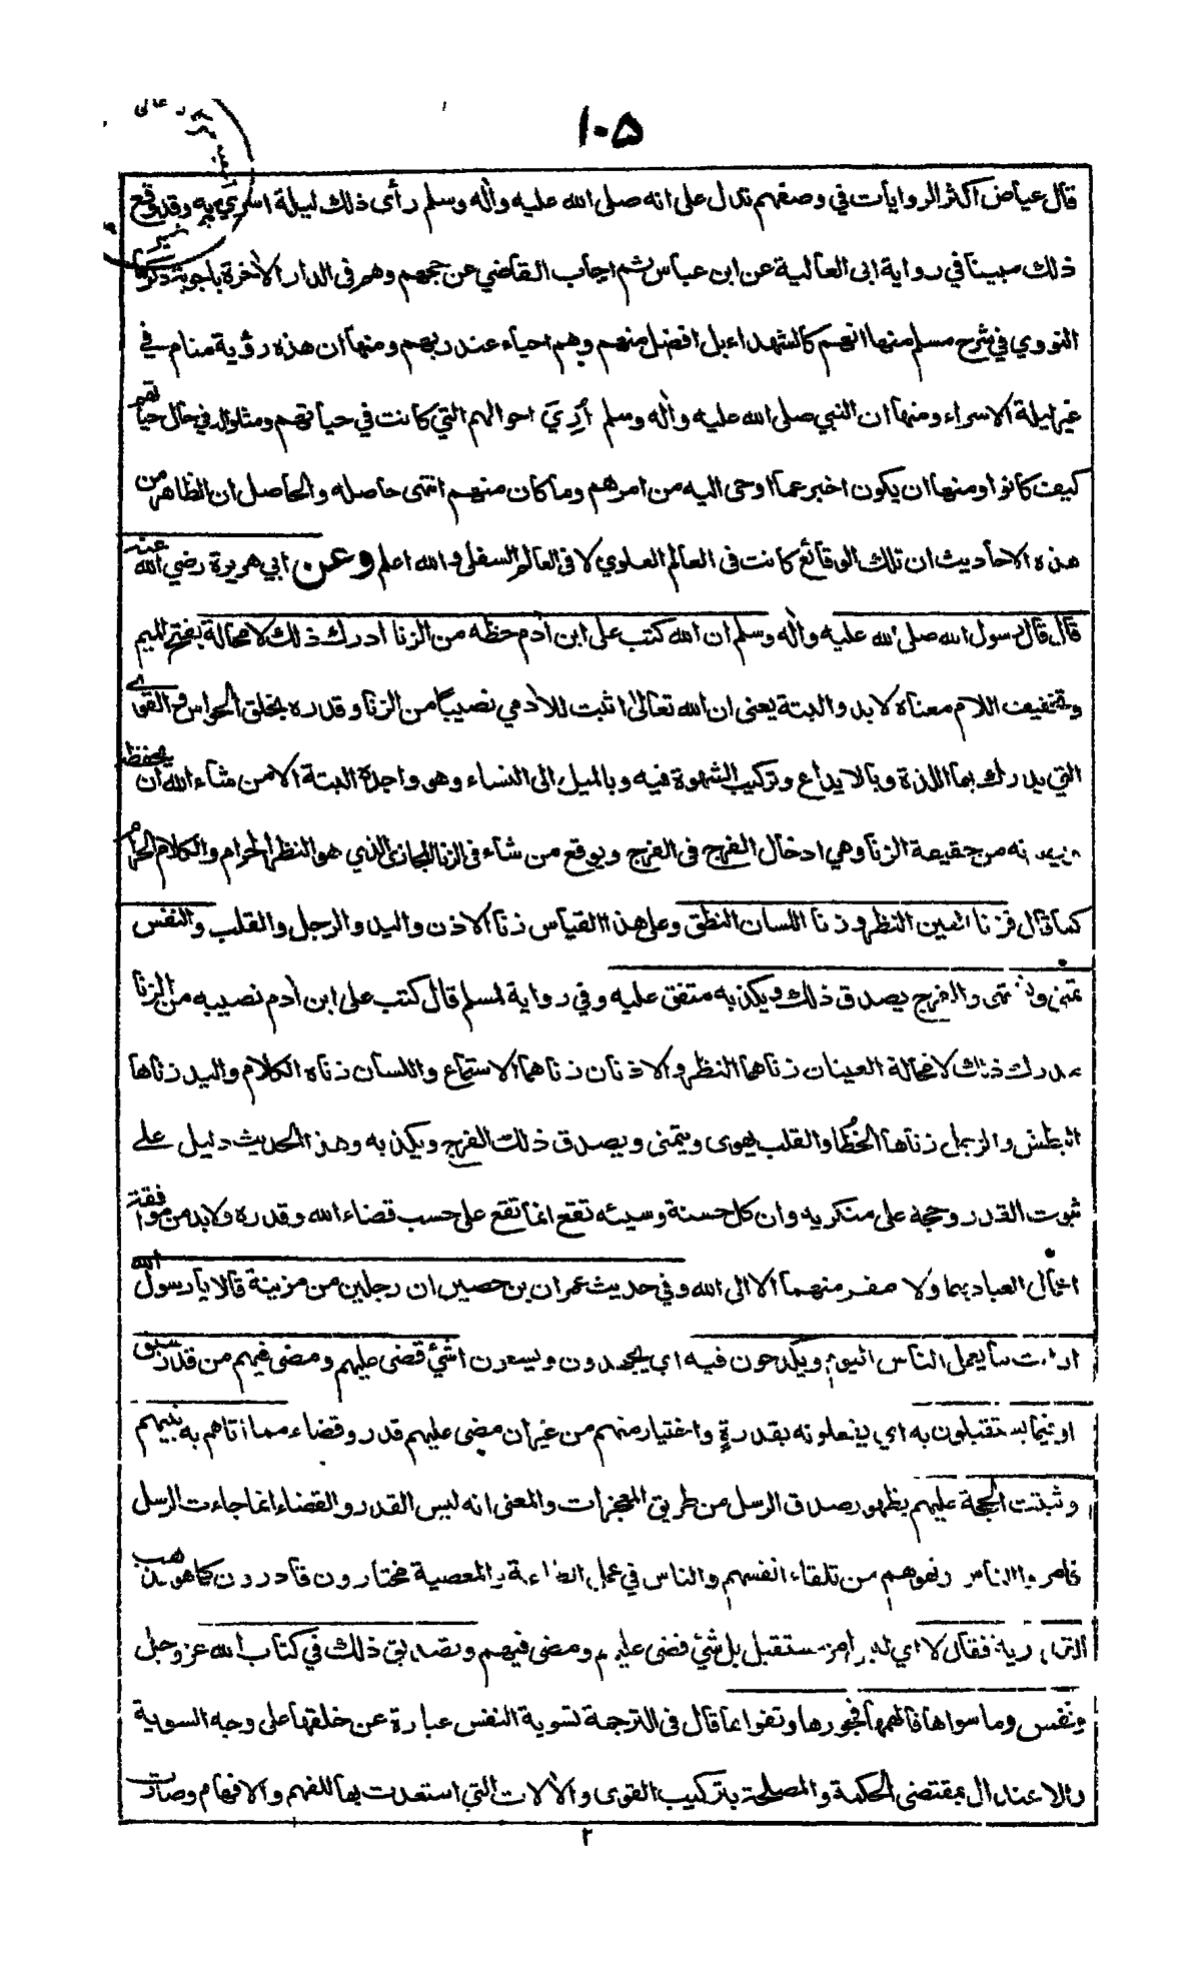 ١٠٥
قال عياض اكثر الروايات في وصفهم تدل على انه صلى الله عليه واٰله وسلم رأى ذلك ليلة اسري به وقد وقع
ذلك مبينا في رواية ابى العالية عن ابن عباس ثم اجاب القاضي عن حجهم وهم فى الدار الاٰخرة باجوبة ذكرها
النووي في شرح مسلم منها انهم كالشهداء بل افضل منهم وهم احياء عند ربهم ومنها ان هذه رؤية منام في
غير ليلة الاسراء ومنها ان النبي صلى الله عليه واٰله وسلم أُرِيَ احوالهم التي كانت في حياتهم ومثلوا له في حال حياتهم
كيف كانوا ومنها ان يكون اخبر عما اوحى اليه من امرهم وما كان منهم انتهى حاصله والحاصل ان الظاهر من
هذه الاحاديث ان تلك الوقائع كانت فى العالم العلوي لا فى العالم السفلى والله اعلم وعن ابي هريرة رضي الله عنه
قال قال رسول الله صلى الله عليه واٰله وسلم ان الله كتب على ابن اٰدم حظه من الزنا ادرك ذلك لا محالة بفتح الميم
وتخفيف اللام معناه لا بد والبتة يعنى ان الله تعالى اثبت للاٰدمي نصيبا من الزنا وقدره بخلق الحواس والقوى
التي يدرك بها اللذة وبالايداع وتركيب الشهوة فيه وبالميل الى النساء وهو واجده البتة الا من شاء الله ان يحفظه
نه من حقيقة الزنا وهي ادخال الفرج فى الفرج ويوقع من شاء فى الزنا المجازى الذي هو النظر الحرام والكلام الحرام
كما قال فزنا العين النظر وزنا اللسان النطق وعلى هذا القياس زنا الاذن واليد والرجل والقلب والنفس
تمنى وتشتهى والفرج يصدق ذلك ويكذبه متفق عليه وفي رواية لمسلم قال كتب على ابن اٰدم نصيبه من الزنا
مدرك ذلك لا محالة العينان زناهما النظر والاذنان زناهما الاستماع واللسان زناه الكلام واليد زناها
البطش والرجل زناها الخُطا والقلب يهوى ويتمنى ويصدق ذلك الفرج ويكذبه وهذا الحديث دليل على
ثبوت القدر وحجة على منكريه وان كل حسنة وسيئه تقع انما تقع على حسب قضاء الله وقدره ولا بد من موافقة
اعمال العباد بهما ولا مفر منهما الا الى الله وفي حديث عمران بن حصين ان رجلين من مزينة قالا يا رسول الله
ارايت ما يعمل الناس اليوم ويكدحون فيه اي يجهدون ويسعون اشئ قضى عليهم ومضى فيهم من قدر سبق
او فيما يستقبلون به اي يفعلونه بقدرةٍ واختيار منهم من غير ان مضى عليهم قدر وقضاء مما اتاهم به نبيهم
وثبتت الحجة عليهم بظهور صدق الرسل من طريق المعجزات والمعنى انه ليس القدر والقضاء انما جاءت الرسل
فامروا الناس ونهوهم من تلقاء انفسهم والناس في عمل الطاعة والمعصية مختارون قادرون كما هو مذهب
القدرية فقال لا اي ليس الامر مستقبل بل شئ قضى عليهم ومضى فيهم وتصديق ذلك في كتاب الله عز وجل
ونفس وما سواها فالهمها فجورها وتقواها قال فى الترجمة تسوية النفس عبارة عن خلقها على وجه السوية
والاعتدال بمقتضى الحكمة والمصلحة بتركيب القوى والاٰلات التي استعدت بها للفهم والافهام وصارت
٢